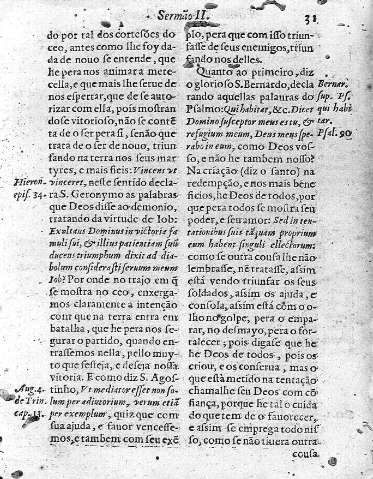 Sermão II. 31
do por tal dos cortesões do
ceo, antes como lhe foy da-
da de nouo se entende, que
he pera nos animar a mere-
cella, e que mais lhe serue de
nos espertar, que de se auto-
rizar com ella, pois mostran
dose vitorioso, não se contẽ
ta de o ser pera si, senão que
trata de o ser de nouo, triun-
fando na terra nos seus mar
tyres, e mais fieis: Vincens vt
vinceret, neste sentido decla-
ra S. Geronymo as palabras
que Deos disse ao demonio,
tratando da virtude de Iob:
Exultaus Dominus in victoria fa
muli sui, & illius patientiam sub
ducens triumphum dixit ad dia
bolum considerasti seruum meum
Iob? Por onde no trajo em q̃
se mostra no ceo, enxerga-
mos claramente a intenção
com que na terra entra em
batalha, que he pera nos se-
gurar o partido, quando en-
trassemos nella, pello muy-
to que festeja, e deseja nossa
vitoria. E como diz S. Agos-
tinho, Vt mediator esset non so-
lum per adiutorium, verum etiã
per exemplum, quiz que com
sua ajuda, e fauor vencesse-
mos, e tambem com seu exẽ
Hieron.
epis. 34.
Aug. 4.
de Trin.
cap. 13.
plo, pera que com isso triun-
fasse de seus enemigos, triun
fando nos delles.
Quanto ao primeiro, diz
o glorioso S. Bernardo, decla
rando aquellas palauras do
Psalmo: Qui habitat, &c. Dicet
Domino susceptor meus es tu, &
refugium meum, Deus meus spe-
rabo in eum, como Deos vos-
so, e não he tambem nosso?
Na criação (diz o santo) na
redempção, e nos mais bene
ficios, he Deos de todos, por
que pera todos se mostra seu
poder, e ser amor: Sed in ten-
tationibus suis tãquam proprium
eum habent singuli ellectorum:
como se outra cousa lhe não
lembrasse, nẽ tratasse, assim
está vendo triunfar os seus
soldados, assim os ajuda, e
consola, assim está cõm o o-
lho no golpe, pera o empa-
rar, no desmayo, pera o for-
talecer; pois digase que he
he Deos de todos, pois os
criou, e os conserua, mas o
que está metido na tentação
chamalhe seu Deos com cõ
fiança, porque he tal o cuida
do que tem de o fauorecer,
e assim se emprega todo nis
so, como se não tiuera outra
cousa
Bernar.
sup. Ps.
qui habi
tat.
Psal. 90